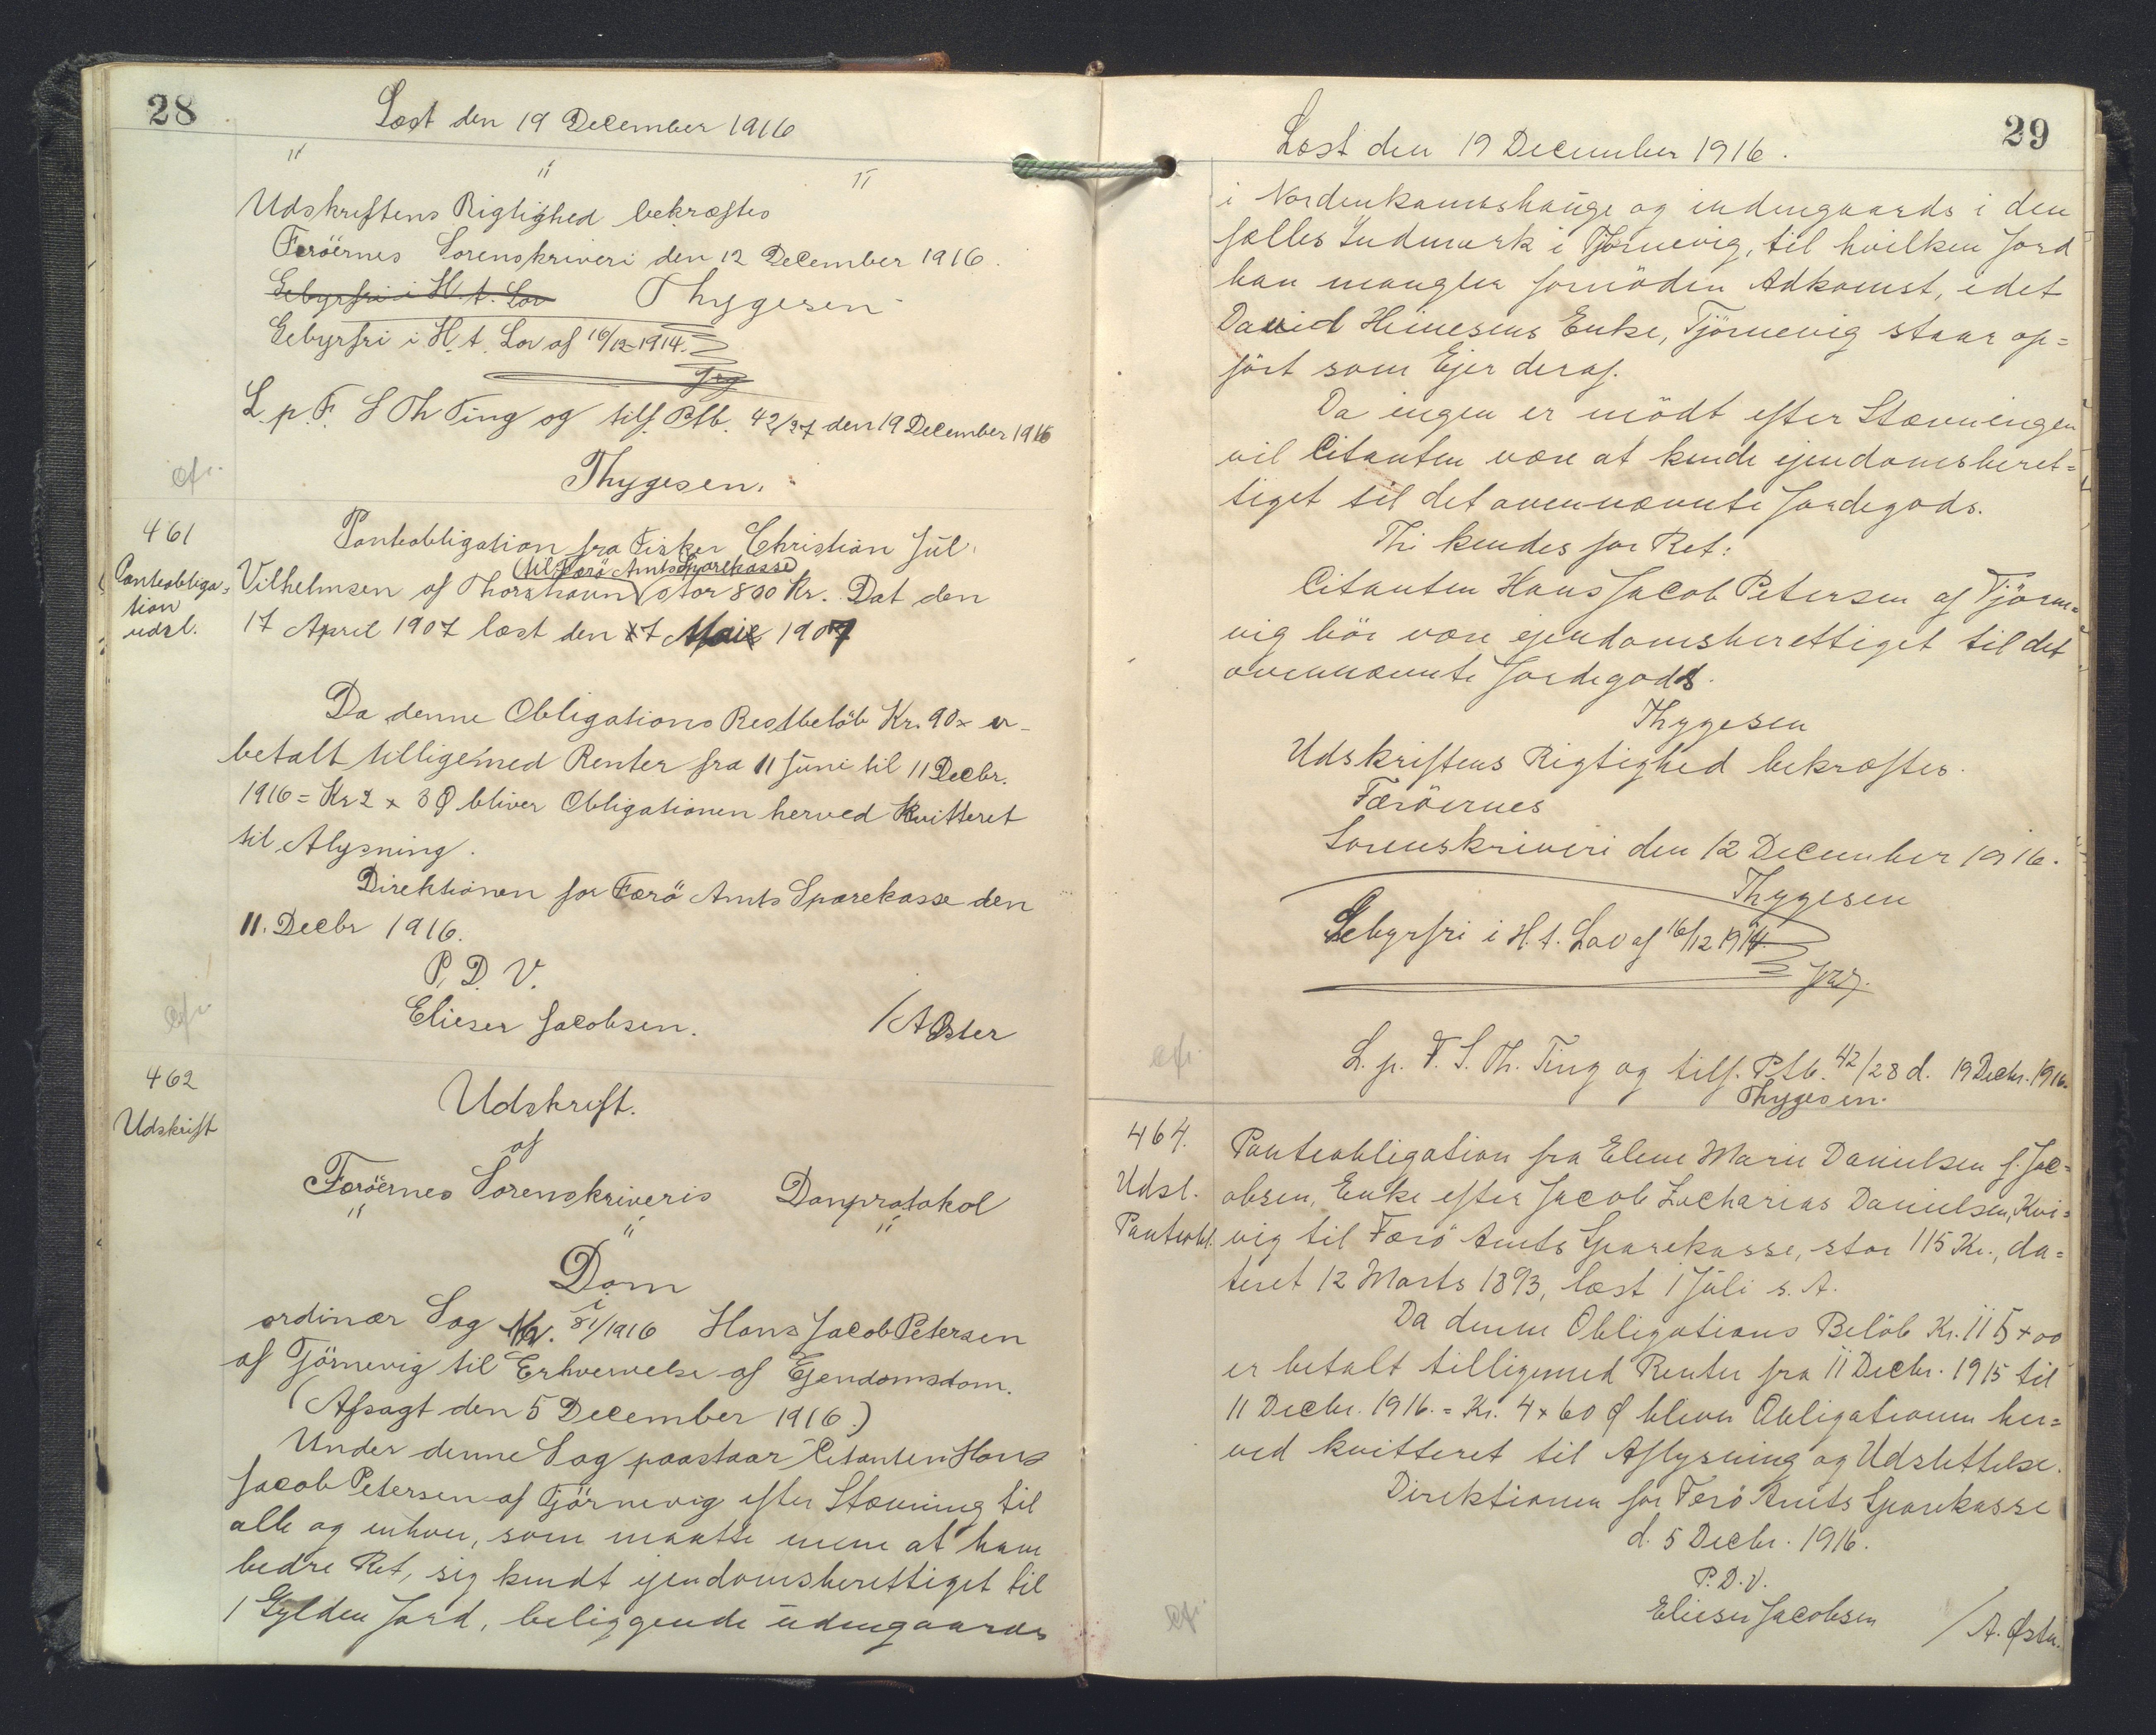 28
Læst den 19 December 1916
" " "
Udskriftens Rigtighed bekræftes
Færöernes Sorenskriveri den 12 December 1916.
Gebyrfri i H. t. Lov Thygesen
Gebyrfri i H. t. Lov af 16/12-1914.
L. p. F. S Th Ting og tilf. Ptb. 42/27 den 19 December 1916
Thygesen.
cfr.
461
Panteobliga-
tion
udsl.
Panteobligation fra Fisker Christian Jul.
til Færö Amts Sparekasse
Vilhelmsen af Thorshavn stor 800 Kr. Dat den
17 April 1907 læst den 7 Mai 1907
Da denne Obligations Restbelöb Kr. 90 x er
betalt tilligemed Renter fra 11 Juni til 11 Decbr.
1916 = Kr 2 x 30 bliver Obligationen herved Kvitteret
til Aflysning.
Direktionen for Færö Amts Sparekasse den
11. Decbr 1916.
P. D. V.
Elieser Jacobsen. / A Øster
cfr
462
Udskrift
Udskrift.
af
Færöernes Sorenskriveris Domprotokol
" " "
Dom
i
ordinær Sag Nr. 81/1916 Hans Jacob Petersen
af Tjörnevig til Erhvervelse af Ejendomsdom.
(Afsagt den 5 December 1916.)
Under denne Sag paastaar Citanten Hans
Jacob Petersen af Tjörnevig efter Stævning til
alle og enhver, som maatte mene at have
bedre Ret, sig kendt ejendomsberettiget til
1 Gylden Jord, beliggende udengaards
29
Læst den 19 December 1916.
i Nordenkamshauge og indengaards i den
fælles Indmark i Tjörnevig, til hvilken Jord
han mangler fornöden Adkomst, idet
David Heinesens Enke, Tjörnevig staar op=
fört som Ejer deraf.
Da ingen er mödt efter Stævningen
vil Citanten være at kende ejendomsberet=
tiget til det ovennævnte Jordegods.
Thi kendes for Ret:
Citanten Hans Jacob Petersen af Tjörne=
vig bör være ejendomsberettiget til det
ovennævnte Jordegods.
Thygesen
Udskriftens Rigtighed bekræftes.
Færöernes
Sorenskriveri den 12 December 1916.
Thygesen
Gebyrfri i H. t. Lov af 16/12 1914.
L. p. F. S. Th. Ting og tilf. Ptb. 42/28 d. 19 Decbr. 1916.
Thygesen.
cfr.
464.
Udsl.
Panteobl.
Panteobligation fra Elene Marie Danielsen f. Jac=
obsen, Enke efter Jacob Zacharias Danielsen, Kvi=
vig til Færö Amts Sparekasse, stor 115 Kr., da=
teret 12 Marts 1893, læst 1 Juli s. A.
Da denne Obligations Belöb Kr. 115 x 00
er betalt tilligemed Renter fra 11 Decbr. 1915 til
11 Decbr. 1916. = Kr. 4 x 60 Ø bliver Obligationen her=
ved kvitteret til Aflysning og Udslettelse.
Direktionen for Færö Amts Sparekasse
d. 5 Decbr. 1916.
P. D. V.
Elieser Jacobsen / A. Øster.
cfr.